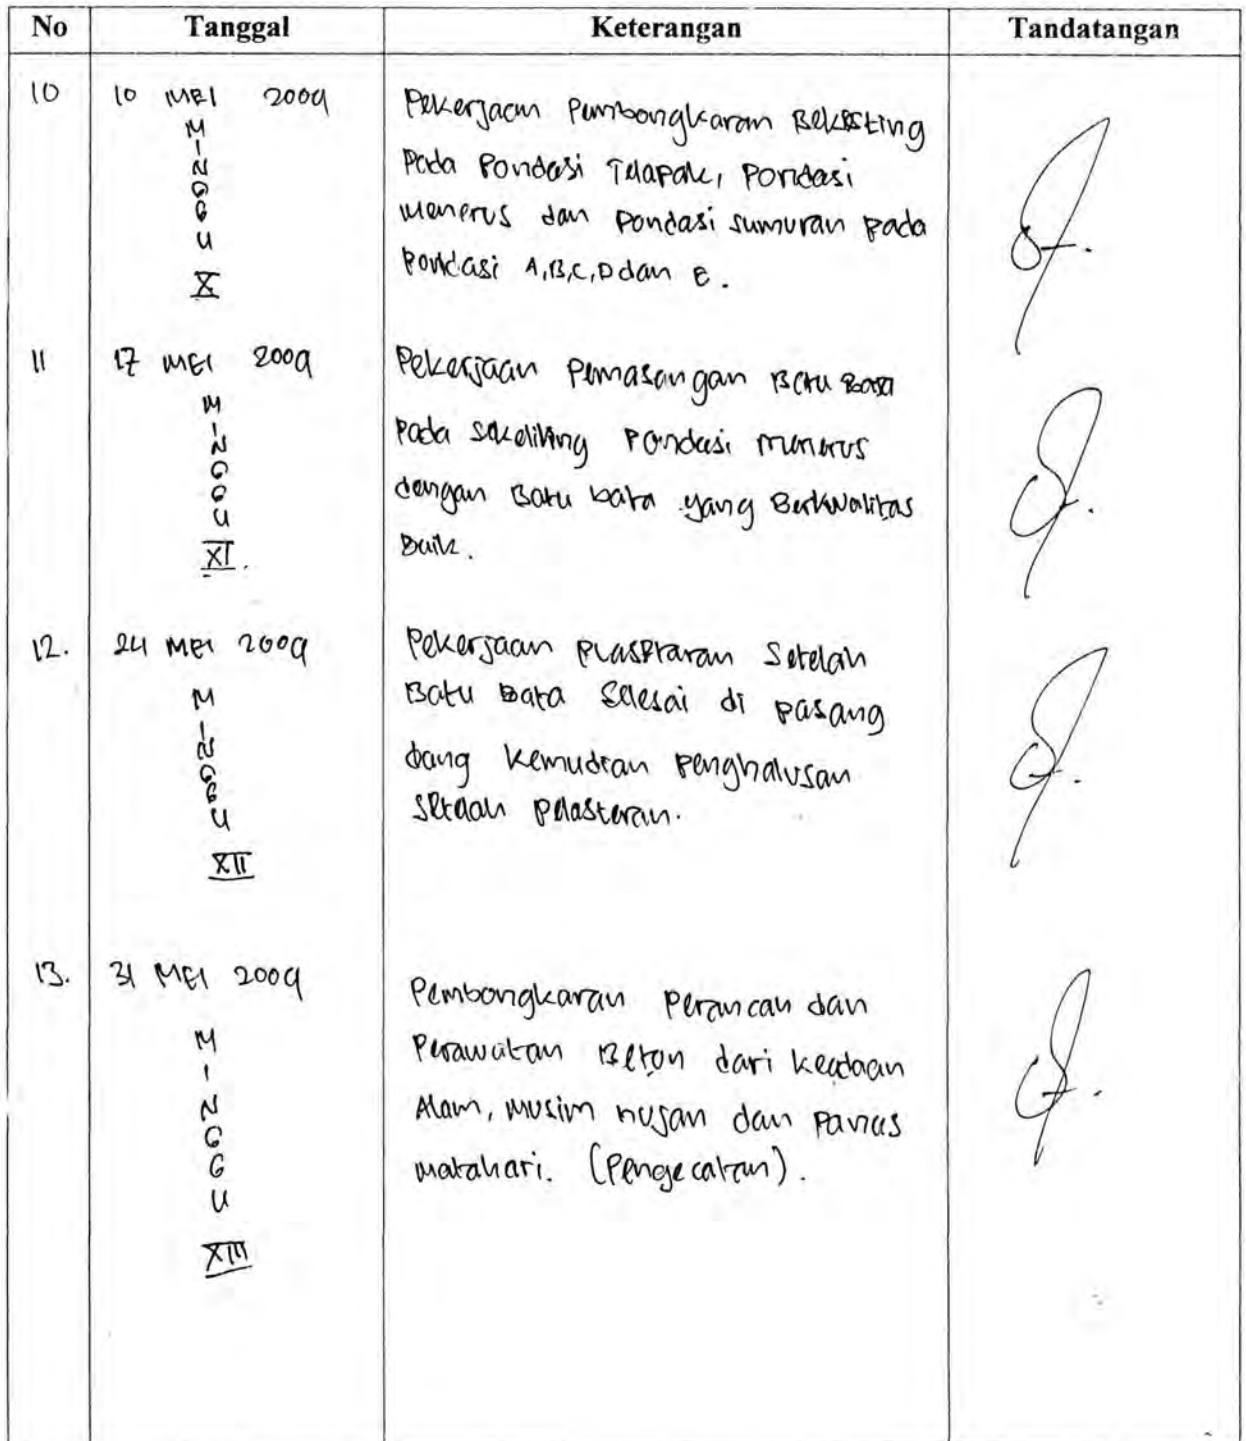 No Tanggal Keterangan Tandatangan
10 10 MEI 2009 Pekerjaan Pembongkaran Bekisting
pada Pondasi Telapak, Pondasi
menerus dan pondasi sumuran pada
pondasi A,B,C,D dan E.
MINGGU
X
11 17 MEI 2009 Pekerjaan Pemasangan Batu Bata
pada sekeliling Pondasi menerus
dengan Batu bata yang Berkwalitas
Baik.
MINGGU
XI.
12. 24 MEI 2009 Pekerjaan Setelah
Batu Bata Selesai di pasang
dang kemudian penghalusan
pelasteran.
MINGGU
XII
13. 31 MEI 2009 Pembongkaran Perancah dan
Perawatan Beton dari keadaan
Alam, musim hujan dan Panas
matahari. (Pengecatan).
MINGGU
XIII